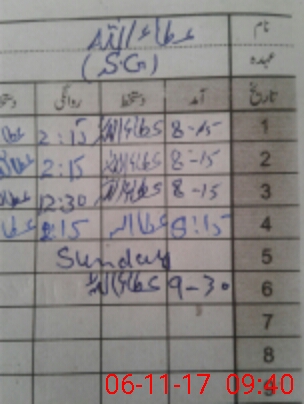 نام عطاءاللہ
عہدہ (S.G)
تاریخ آمد دستخط روانگی
1 8-15 عطاءاللہ 2:15
2 8-15 عطاءاللہ 2:15
3 8-15 عطاءاللہ 12:30
4 8:15 عطااللہ 2:15
5 Sunday
6 9-30 عطاءاللہ
7
8
9
06-11-17 09:40